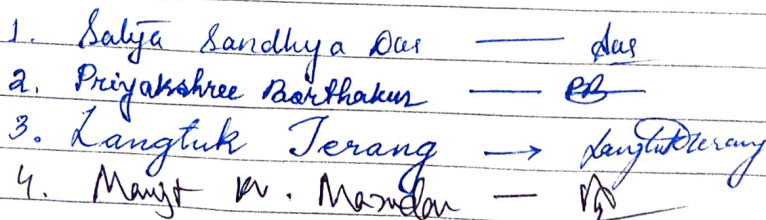 1. Satya Sandhya Das — Das
2. Priyakshree Borthakur — PB
3. Langtuk Terang → Langtuk Terang
4. Manjit Kr.